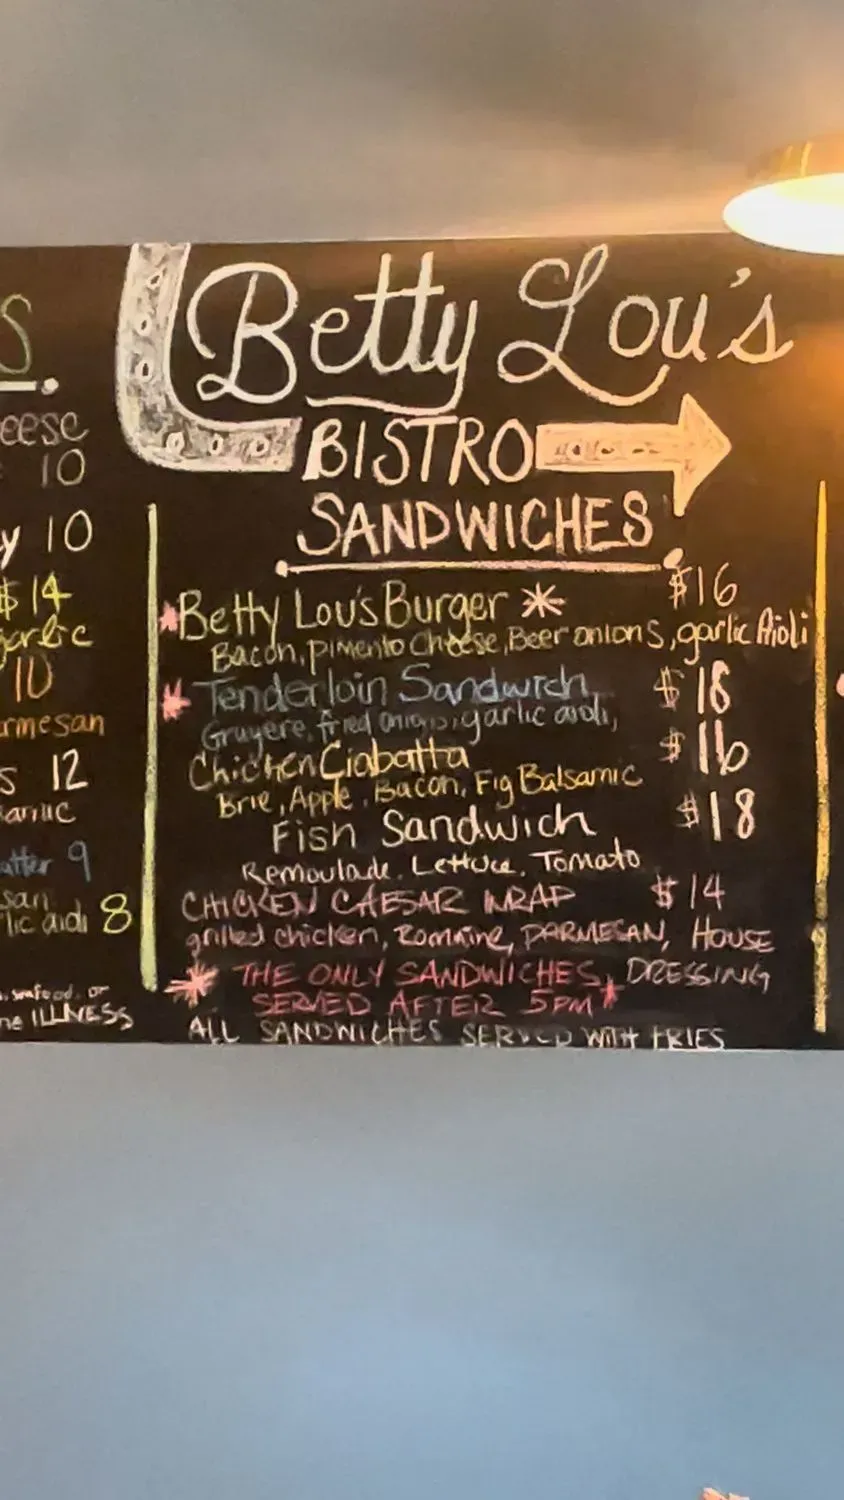 S
eese
10
y 10
$14
garlic
10
rmesan
s 12
9
san
lic aioli 8
, seafood, or
ne ILLNESS
Betty Lou's
BISTRO
SANDWICHES
*Betty Lou's Burger * $16
Bacon, pimento Cheese, Beer onions, garlic Aioli
* Tenderloin Sandwich $18
Gruyere, fried onions, garlic aioli,
Chicken Ciabatta $16
Brie, Apple, Bacon, Fig Balsamic
Fish Sandwich $18
Remoulade, Lettuce, Tomato
CHICKEN CAESAR WRAP $14
grilled chicken, Romaine, PARMESAN, HOUSE
DRESSING
* THE ONLY SANDWICHES
SERVED AFTER 5PM *
ALL SANDWICHES SERVED WITH FRIES